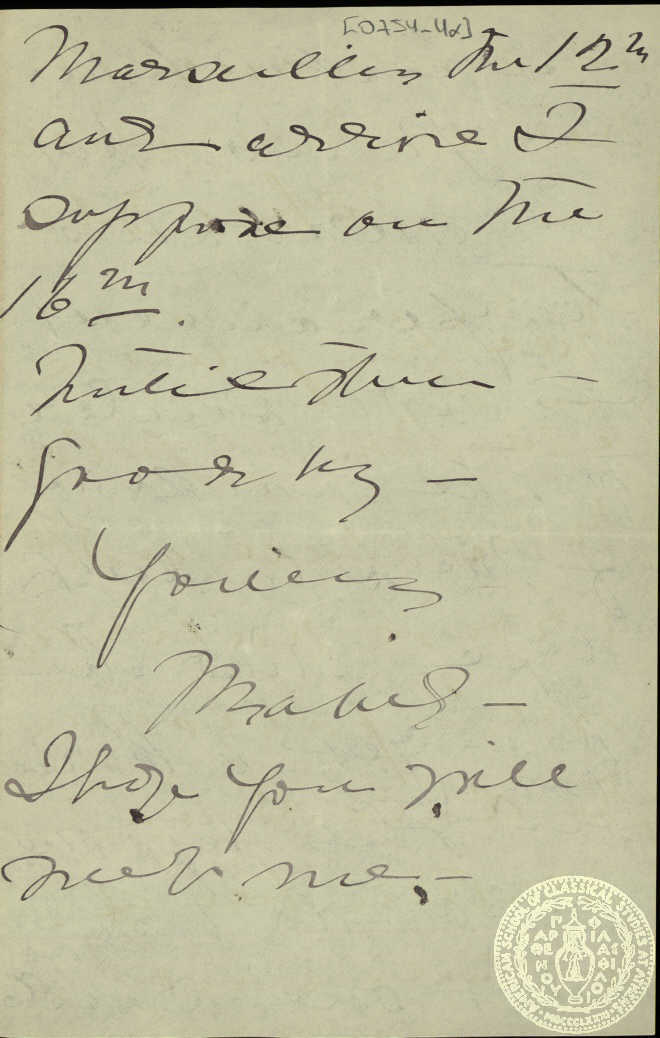 [0754-4α]
Marseilles the 12th
and arrive I
suppose on the
16th.
Until then —
good by —
Yours
Mabel —
I hope you will
meet me. —
AMERICAN SCHOOL OF CLASSICAL STUDIES AT ATHENS · MDCCCLXXXI
ΠΑΡΘΕΝΟΥ ΦΙΛΑΣ ΦΙ